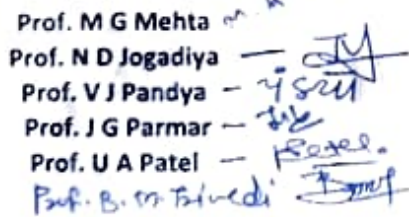 Prof. M G Mehta
Prof. N D Jogadiya —
Prof. V J Pandya –
Prof. J G Parmar –
Prof. U A Patel –
Prof. B. M Trivedi